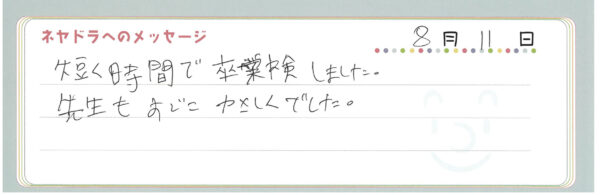 ネヤドラへのメッセージ
8月11日
短く時間で卒業検しました。
先生も すごく やさしくでした。